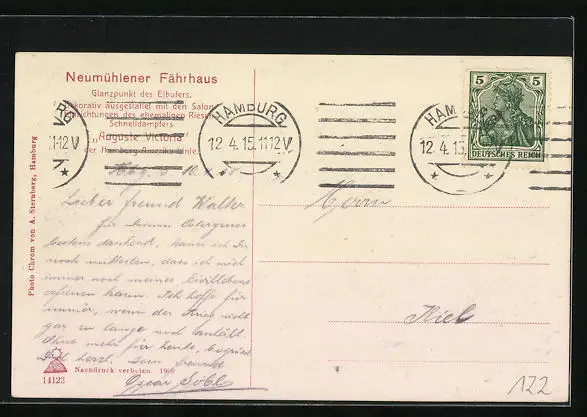 Neumühlener Fährhaus
Glanzpunkt des Elbufers.
Dekorativ ausgestattet mit den Salon-
Einrichtungen des ehemaligen Riesen-
Schnelldampfers
„Auguste Victoria"
der Hamburg-Amerika-Linie.
HAMBURG
12.4.15.11-12V
HAMBURG
12.4.15.11-12V
11-12V
5 5
DEUTSCHES REICH
Lieber Freund Walter
für Deinen Ostergruss
bestens dankend, kann ich Dir
noch mitteilen, dass ich mich
immer noch meines Civillebens
erfreuen kann. Ich hoffe für
immer, wenn der Krieg nicht
gar zu lange noch anhält.
Ohne mehr für heute, begrüsst
Dich herzl. Dein Freund
Oscar
Herrn
Kiel
Photo Chrom von A. Sternberg, Hamburg
14123
Nachdruck verboten. 1909
122